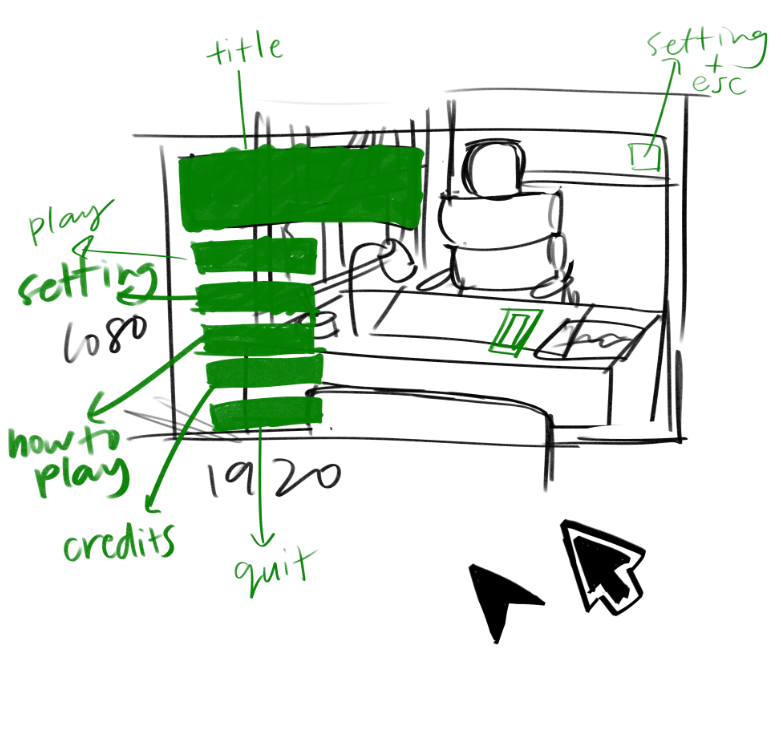 title
setting
+
esc
play
setting
1080
how to
play
1920
credits
quit